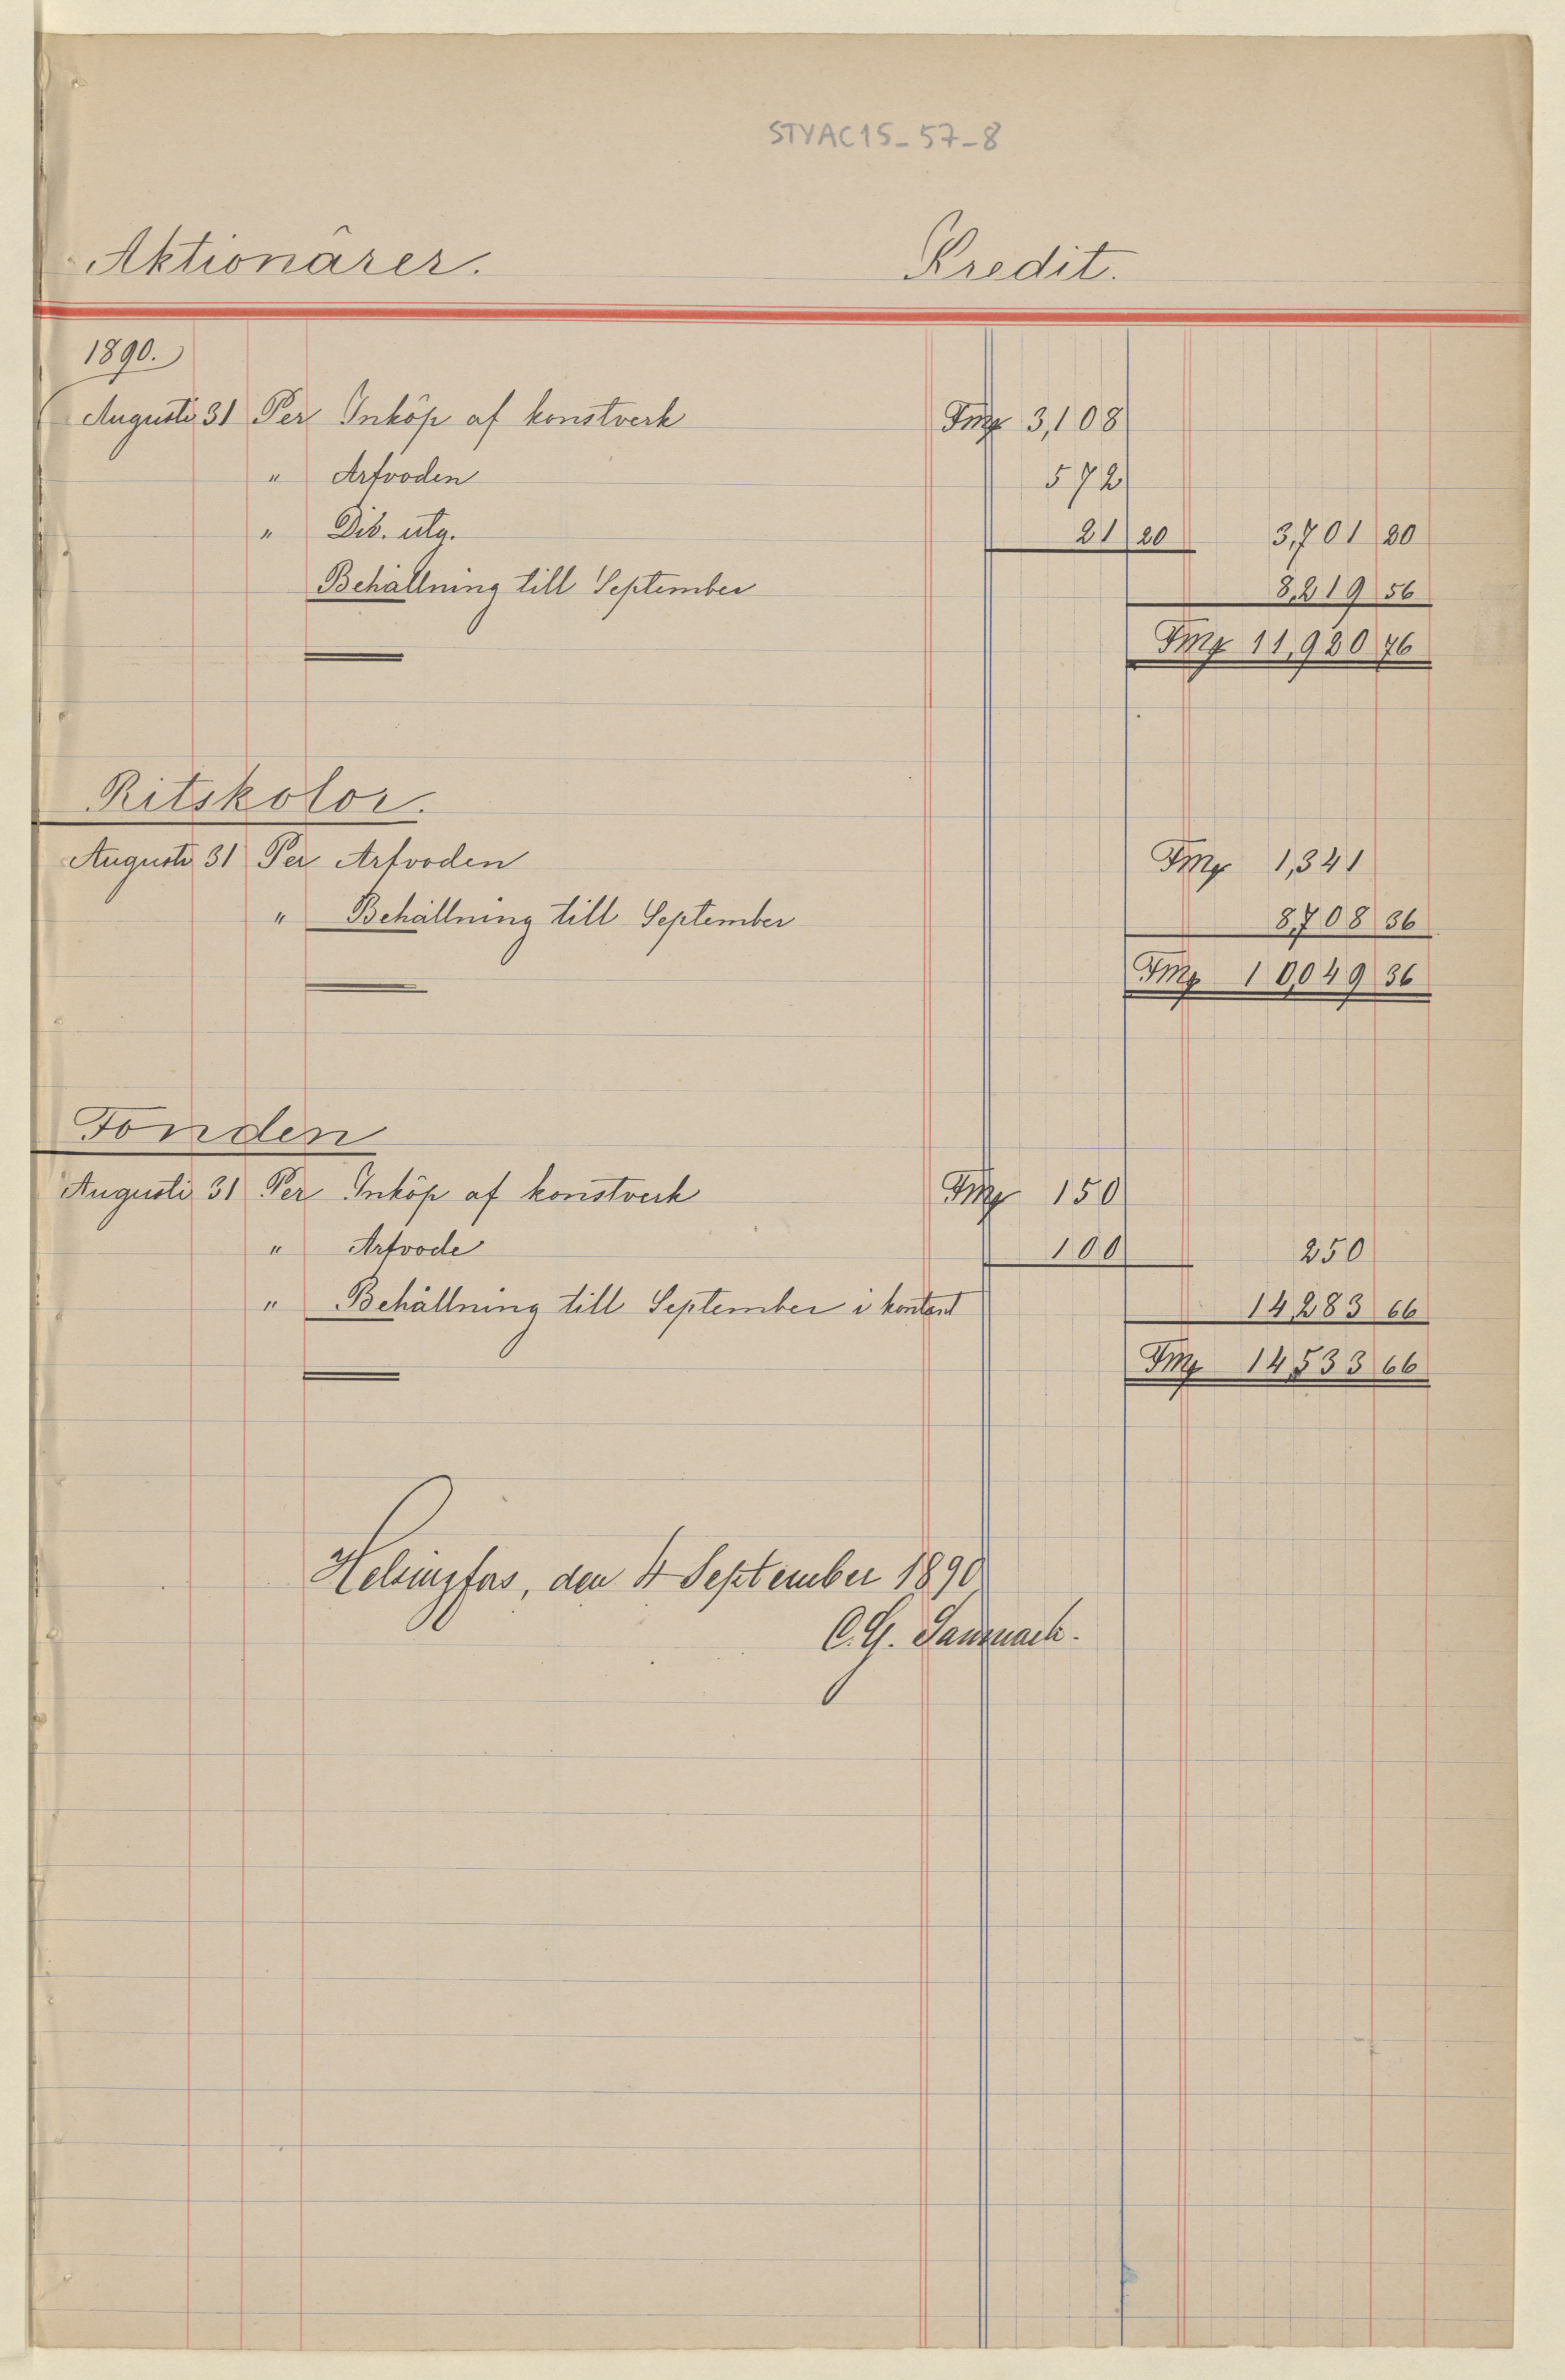 STYAC15_57_8
Aktionärer. Kredit.
1890.
Augusti 31 Per Inköp af konstverk Fmg 3,108
" Arfvoden 572
" Div. utg. 21 20 3,701 20
Behållning till September 8,219 56
Fmg 11,920 76
Ritskolor.
Augusti 31 Per Arfvoden Fmg 1,341
" Behållning till September 8,708 36
Fmg 10,049 36
Fonden
Augusti 31 Per Inköp af konstverk Fmg 150
" Arfvode 100 250
" Behållning till September i kontant 14,283 66
Fmg 14,533 66
Helsingfors, den 4 September 1890
C. G. Sanmark.